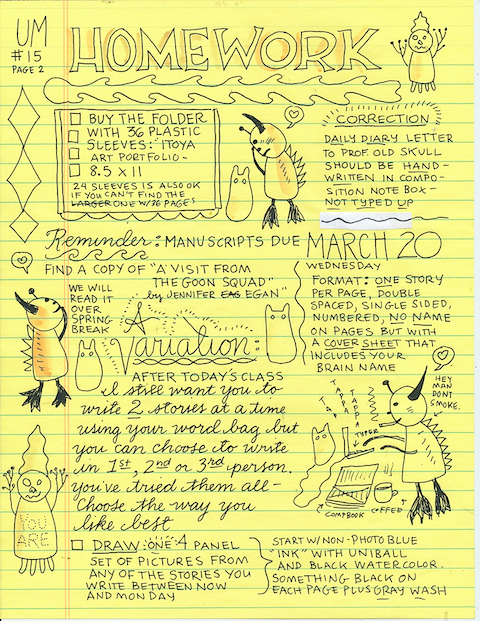 UM
#15
PAGE 2
HOMEWORK
BUY THE FOLDER
WITH 36 PLASTIC
SLEEVES: ITOYA
ART PORTFOLIO-
8.5 X 11
24 SLEEVES IS ALSO OK
IF YOU CAN'T FIND THE
LARGER ONE W/36 PAGES
CORRECTION
DAILY DIARY LETTER
TO PROF. OLD SKULL
SHOULD BE HAND-
WRITTEN IN COMPO-
SITION NOTE BOX-
NOT TYPED UP
Reminder: MANUSCRIPTS DUE MARCH 20
WEDNESDAY
FIND A COPY OF "A VISIT FROM
THE GOON SQUAD"
by JENNIFER EAG EGAN"
WE WILL
READ IT
OVER
SPRING
BREAK
FORMAT: ONE STORY
PER PAGE, DOUBLE
SPACED, SINGLE SIDED,
NUMBERED, NO NAME
ON PAGES BUT WITH
A COVER SHEET THAT
INCLUDES YOUR
BRAIN NAME
A
Variation:
AFTER TODAY'S CLASS
I still want you to
write 2 stories at a time
using your word bag but
you can choose to write
in 1st, 2nd or 3rd person.
you've tried them all-
Choose the way you
like best
HEY
MAN
DONT
SMOKE.
TAPPA
TAPPA
TAPPA
TYPER
COMPBOOK
COFFEE
YOU
ARE
DRAW: ONE 4 PANEL
SET OF PICTURES FROM
ANY OF THE STORIES YOU
WRITE BETWEEN NOW
AND MONDAY
START W/NON-PHOTO BLUE
"INK" WITH UNIBALL
AND BLACK WATERCOLOR.
SOMETHING BLACK ON
EACH PAGE PLUS GRAY WASH